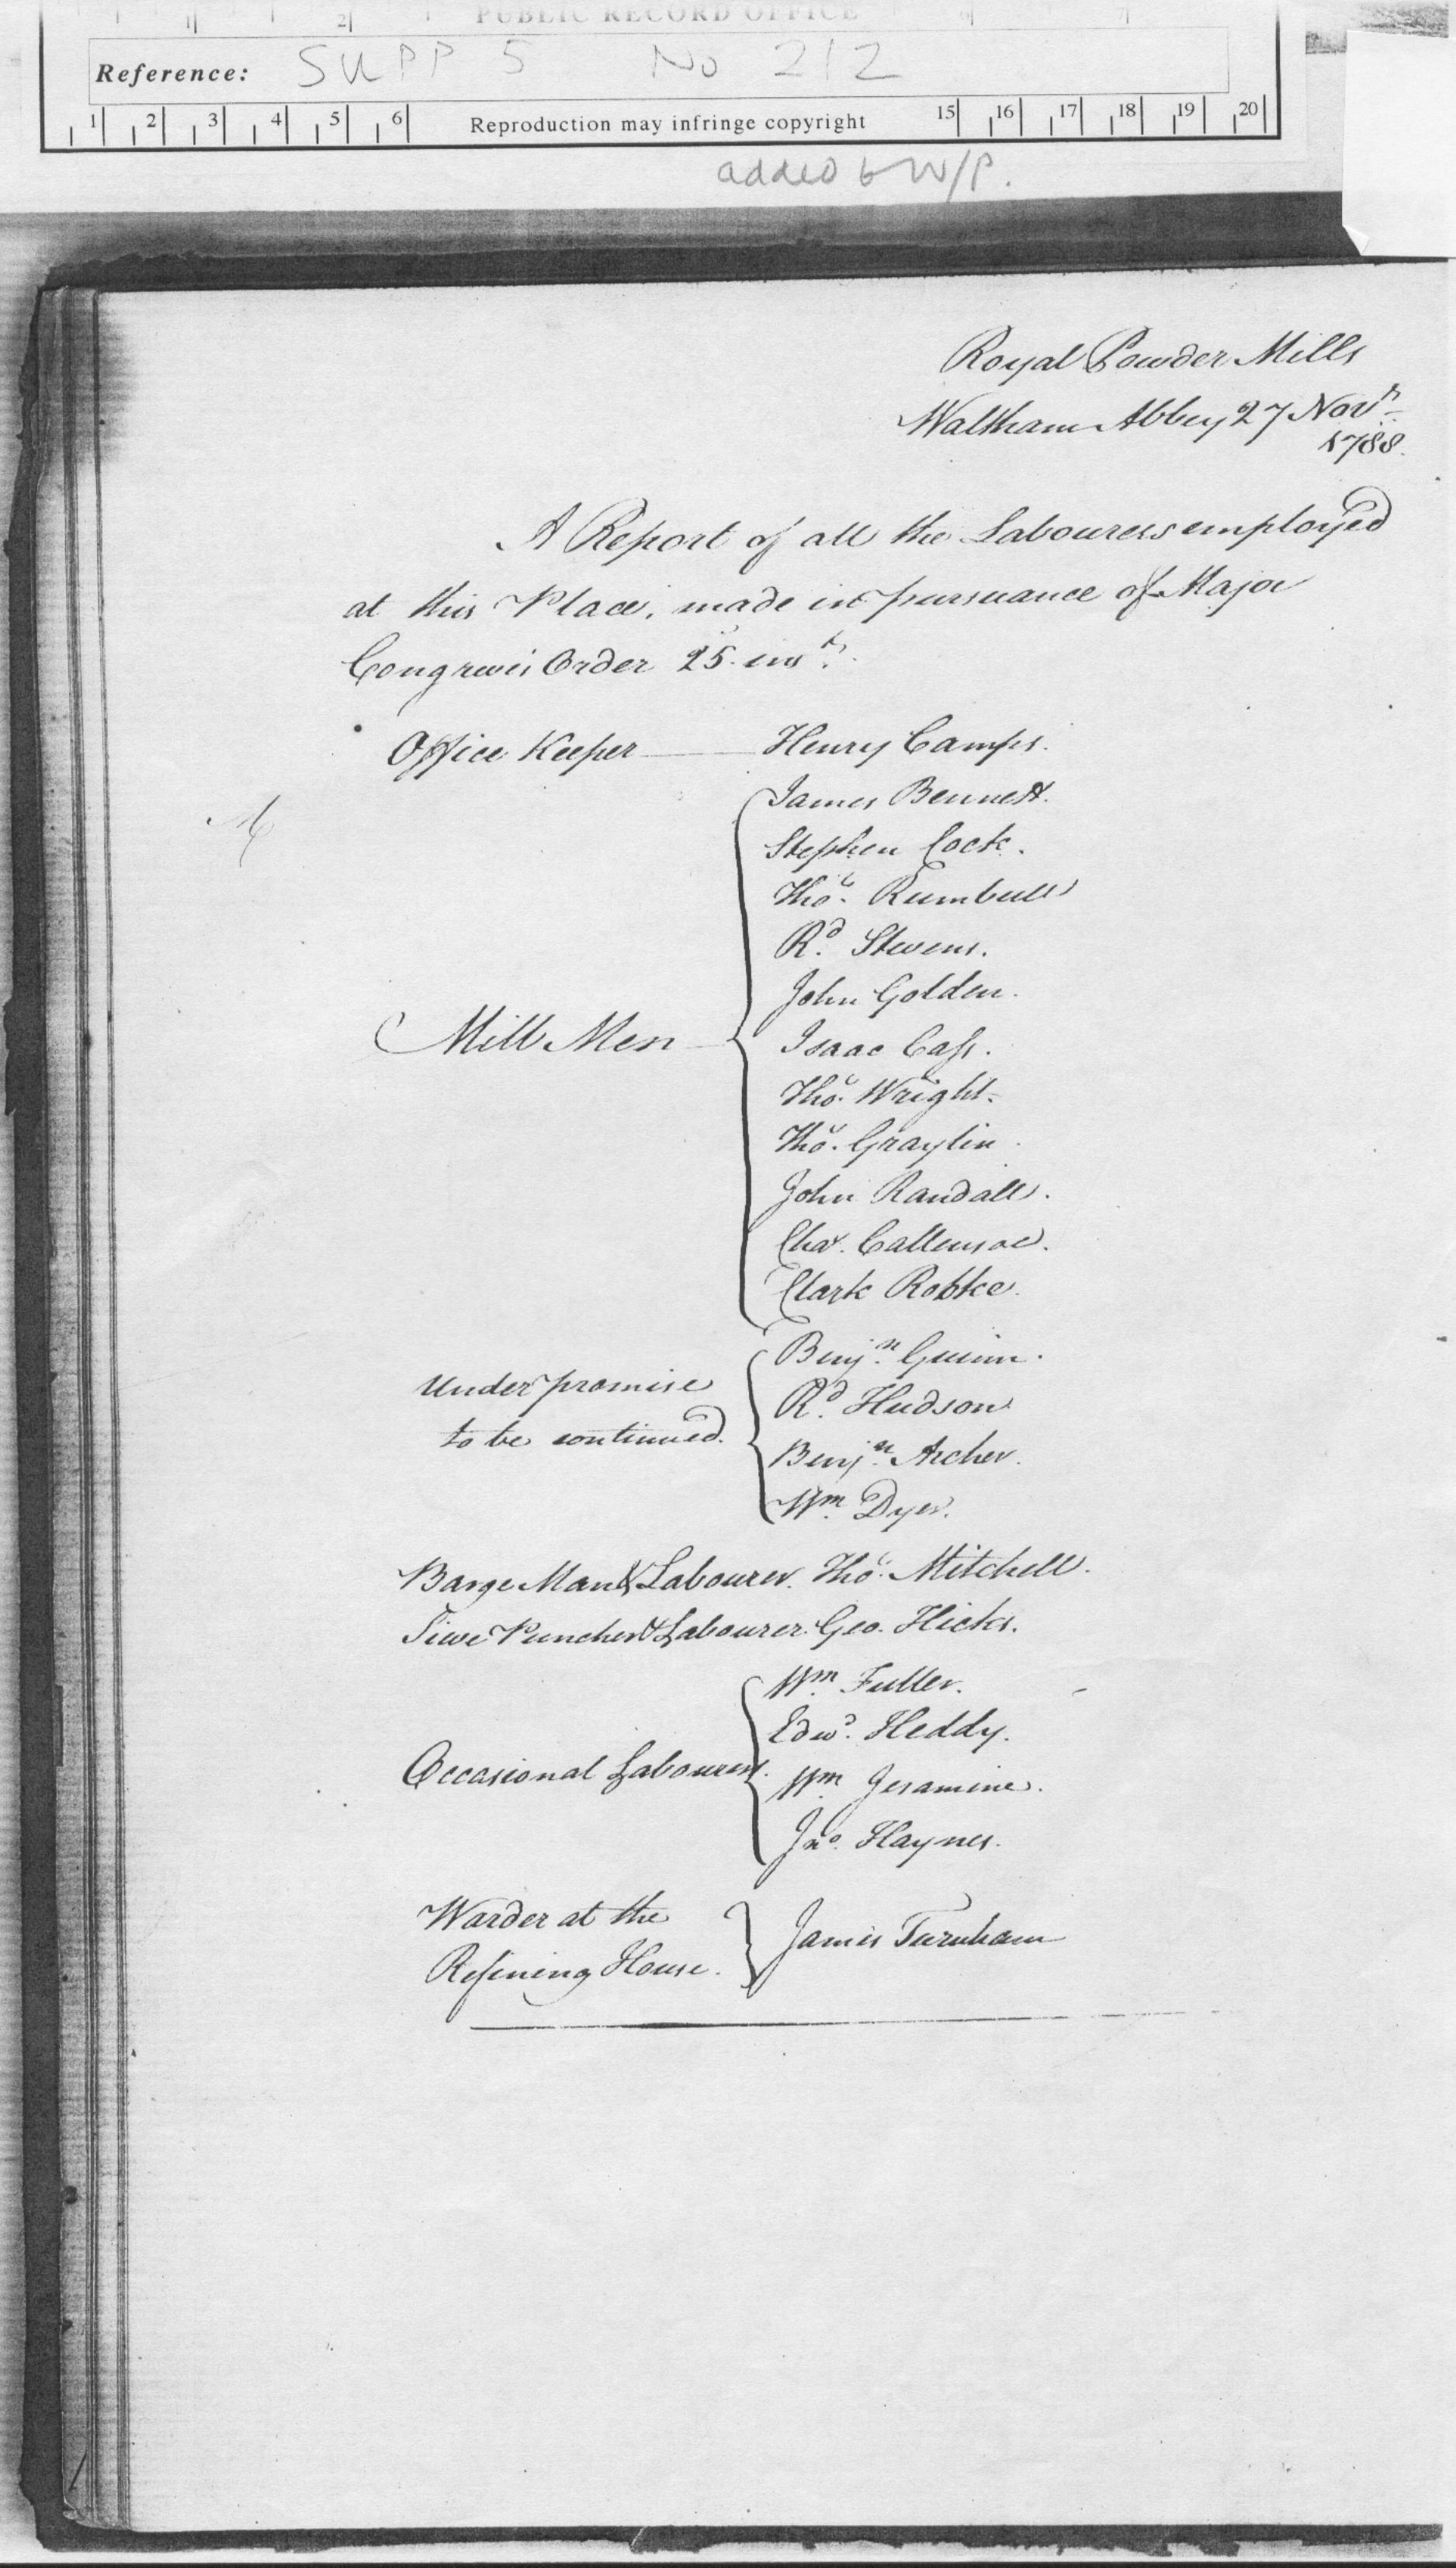 PUBLIC RECORD OFFICE
Reference: SUPP 5 No 212
1 2 3 4 5 6 Reproduction may infringe copyright 15 16 17 18 19 20
added W/P.
Royal Powder Mills
Waltham Abbey 27 Novr.
1788.
A Report of all the Labourers employed
at this Place, made in pursuance of Major
Congreves Order 25. inst.
Office Keeper Henry Camps.
James Bennett.
Stephen Cock.
Thos. Rumbull
Rd. Stevens.
John Golden.
Mill Men
Isaac Cass.
Thos. Wright.
Thos. Graylin.
John Randall.
Chas.
Clark
Benjn. Guinn.
Under promise
Rd. Hudson
to be continued.
Benjn. Archer.
Wm. Dyer.
Barge Man & Labourer. Thos. Mitchell.
Sieve Puncher & Labourer. Geo. Hicks.
Wm. Fuller.
Edwd. Heddy.
Occasional Labourers.
Wm. Jesamine.
Jno. Haynes.
Warder at the
James Turnham
Refining House.